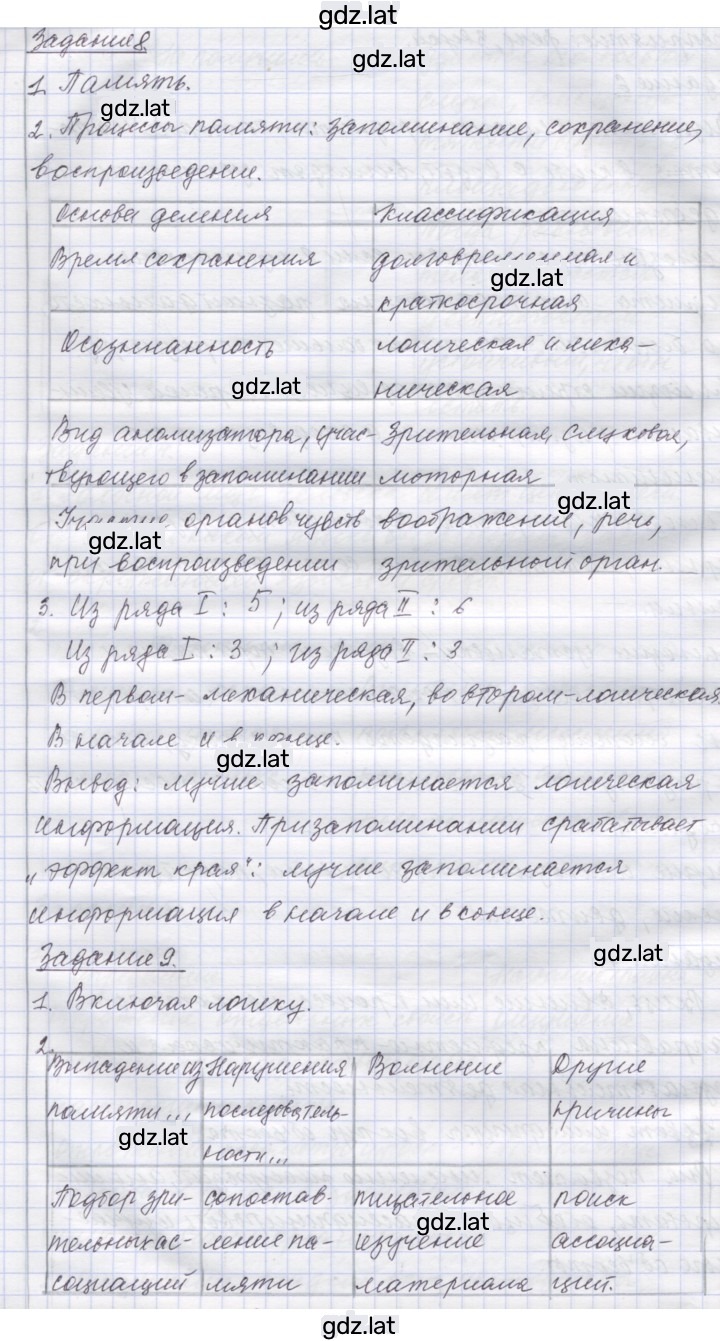 gdz.lat
Задание 8
1. Память.
gdz.lat
2. Процессы памяти: запоминание, сохранение,
воспроизведение.
Основа деления Классификация
Время сохранения долговременная и
gdz.lat
краткосрочная
Осознанность логическая и меха-
gdz.lat
ническая
Вид анализатора, учас- Зрительная, слуховая,
твующего в запоминании моторная
gdz.lat
Участие органов чувств воображение, речь,
gdz.lat
при воспроизведении зрительный орган.
3. Из ряда I : 5 ; из ряда II : 6
Из ряда I : 3 ; из ряда II : 3
В первом- механическая, во втором-логическая.
В начале и в конце.
gdz.lat
Вывод: лучше запоминается логическая
информация. При запоминании срабатывает
„эффект края": лучше запоминается
информация в начале и в конце.
gdz.lat
Задание 9.
1. Включая логику.
2.
Выпадение из Нарушения Волнение Другие
памяти... последователь- причины
gdz.lat
ности...
Подбор зри- сопостав- тщательное поиск
gdz.lat
тельных ас- ление па- изучение ассоциа-
социаций мяти материала ций.
gdz.lat